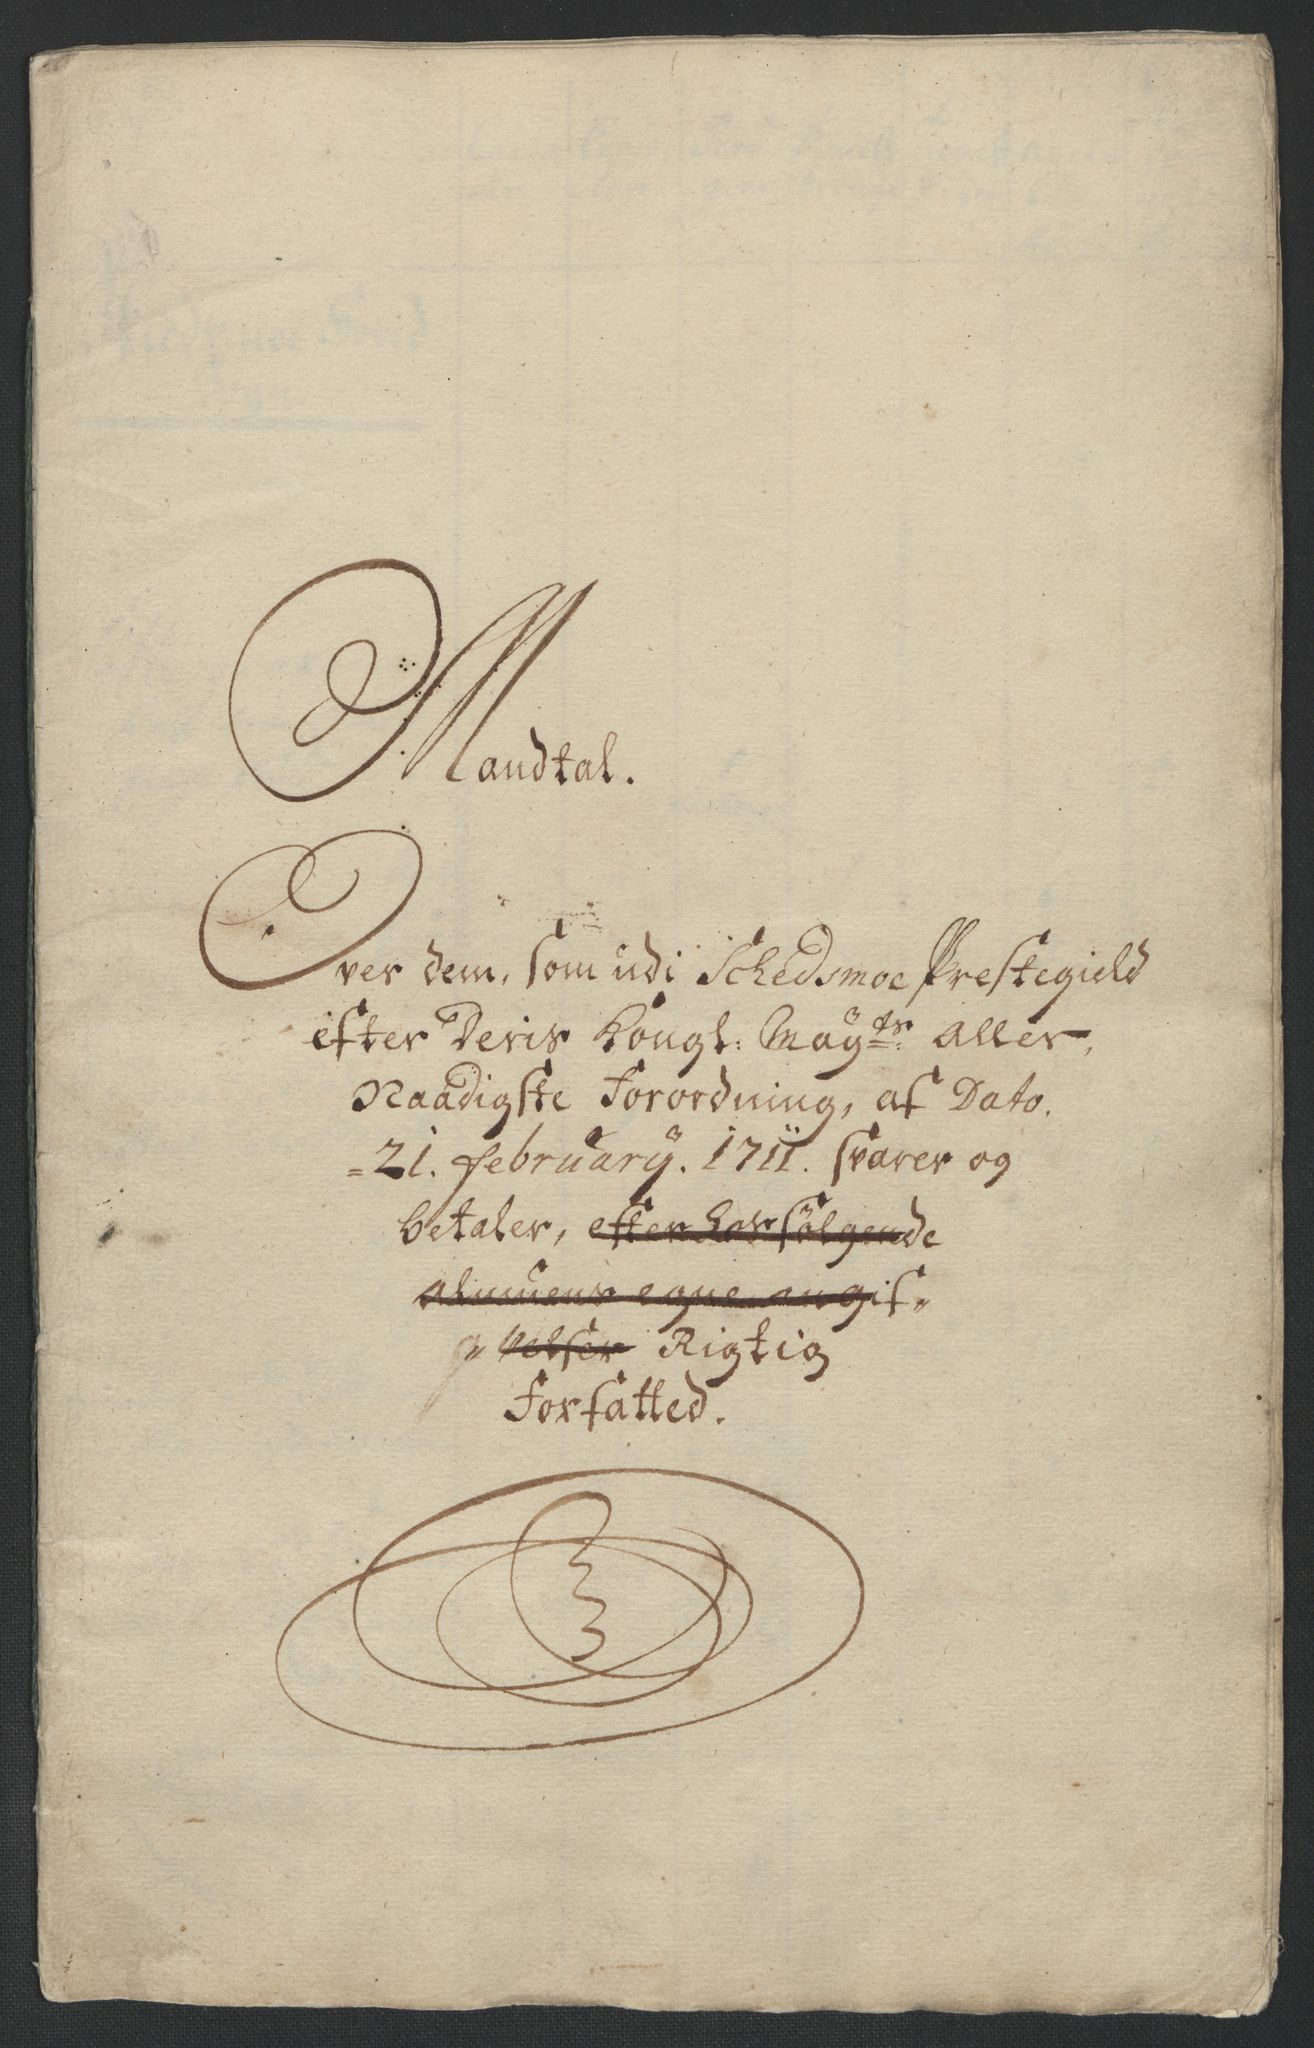 Mandtal.
Over dem, som udi Schedsmoe Prestegield
efter Deris Kongl: Mayts: Aller,
Naadigste Forordning, af Dato.
=21. february. 1711. svarer og
betaler, efter hosfölgende
Almuens egne angif„
velser Rigtig
Forfatted.